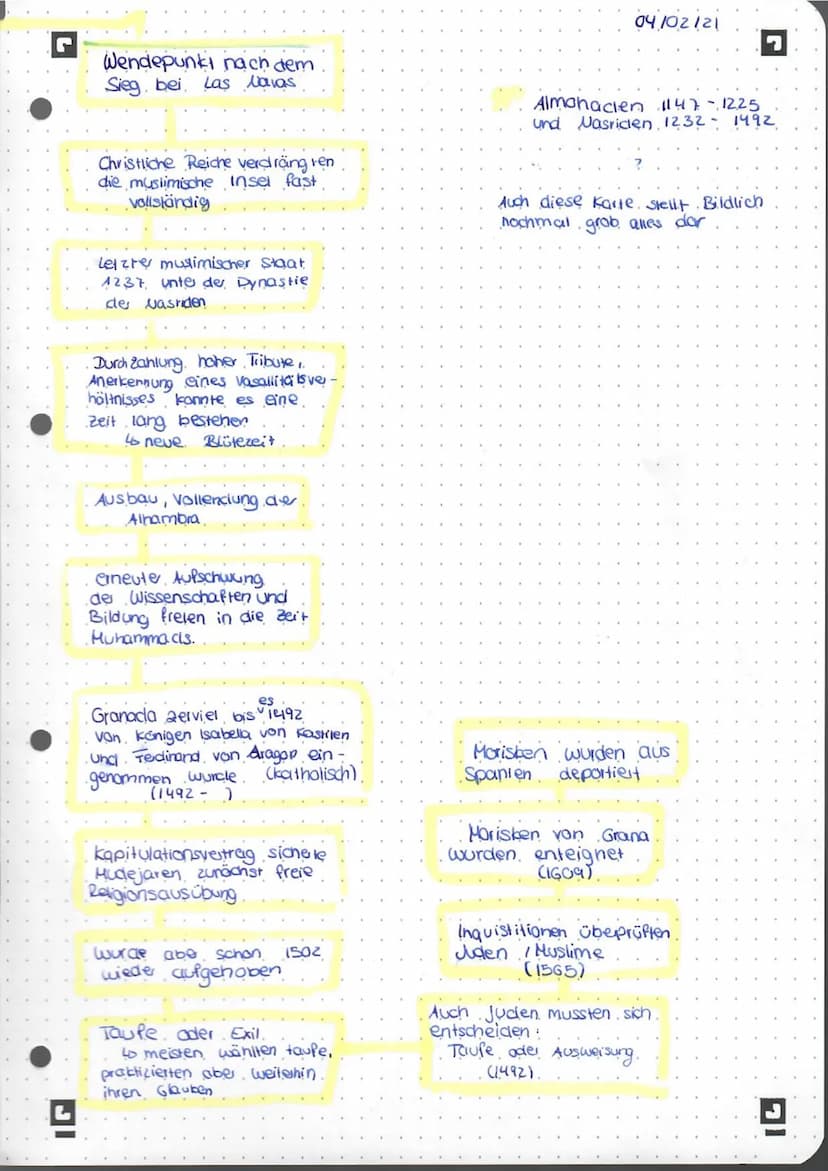 04/02/21
Wendepunkt nach dem
Sieg bei Las Navas
Almohaden 1147 - 1225
und Nasriden 1232 - 1492
?
Auch diese Karte stellt Bildlich
nochmal grob alles dar
Christliche Reiche verdrängten
die muslimische Insel fast
vollständig
Letzter muslimischer Staat
1237 unter der Dynastie
der Nasriden
Durch Zahlung hoher Tribute,
Anerkennung eines Vasallitätsver-
hältnisses konnte es eine
Zeit lang bestehen
↳ neue Blütezeit
Ausbau, Vollendung der
Alhambra
erneuter Aufschwung
der Wissenschaften und
Bildung fielen in die Zeit
Muhammads.
Granada zerviel bis es 1492
von Königen Isabella von Kastilien
und Ferdinand von Aragon ein-
genommen wurde (katholisch)
(1492 - )
Kapitulationsvertrag sicherte
Mudejaren zunächst freie
Religionsausübung
wurde aber schon 1502
wieder aufgehoben
Taufe oder Exil
↳ meisten wählten taufe,
praktizierten aber weiterhin
ihren Glauben
Auch Juden mussten sich
entscheiden:
Taufe oder Ausweisung
(1492)
Inquistitionen überprüften
Juden / Muslime
(1565)
Morisken von Grana
wurden enteignet
(1609)
Morisken wurden aus
Spanien deportiert